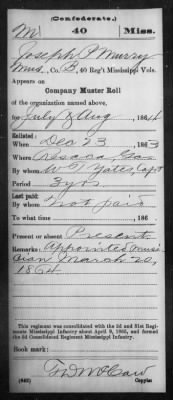 (Confederate.)
M 40 Miss.
Joseph P Murry
Mus, Co. B, 40 Reg't Mississippi Vols.
Appears on
Company Muster Roll
of the organization named above,
for July & Aug, 1864
Enlisted:
When Dec 23, 1863
Where Resaca, Ga
By whom W T Yates, Capt
Period 3 yrs
Last paid:
By whom Not paid
To what time , 186 .
Present or absent Present
Remarks: Appointed musi
cian March 20,
1864
This regiment was consolidated with the 3d and 31st Regi-
ments Mississippi Infantry about April 9, 1865, and formed
the 3d Consolidated Regiment Mississippi Infantry.
Book mark:
(642) Copyist.